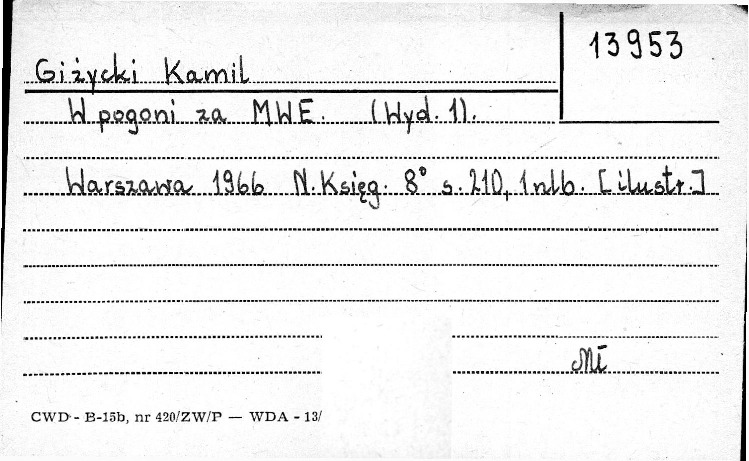 13953
Giżycki Kamil
W pogoni za MWE. (Wyd. 1).
Warszawa 1966 N. Księg. 8° s. 210, 1 nlb. [ilustr.]
CWD - B-15b, nr 420/ZW/P — WDA - 13/